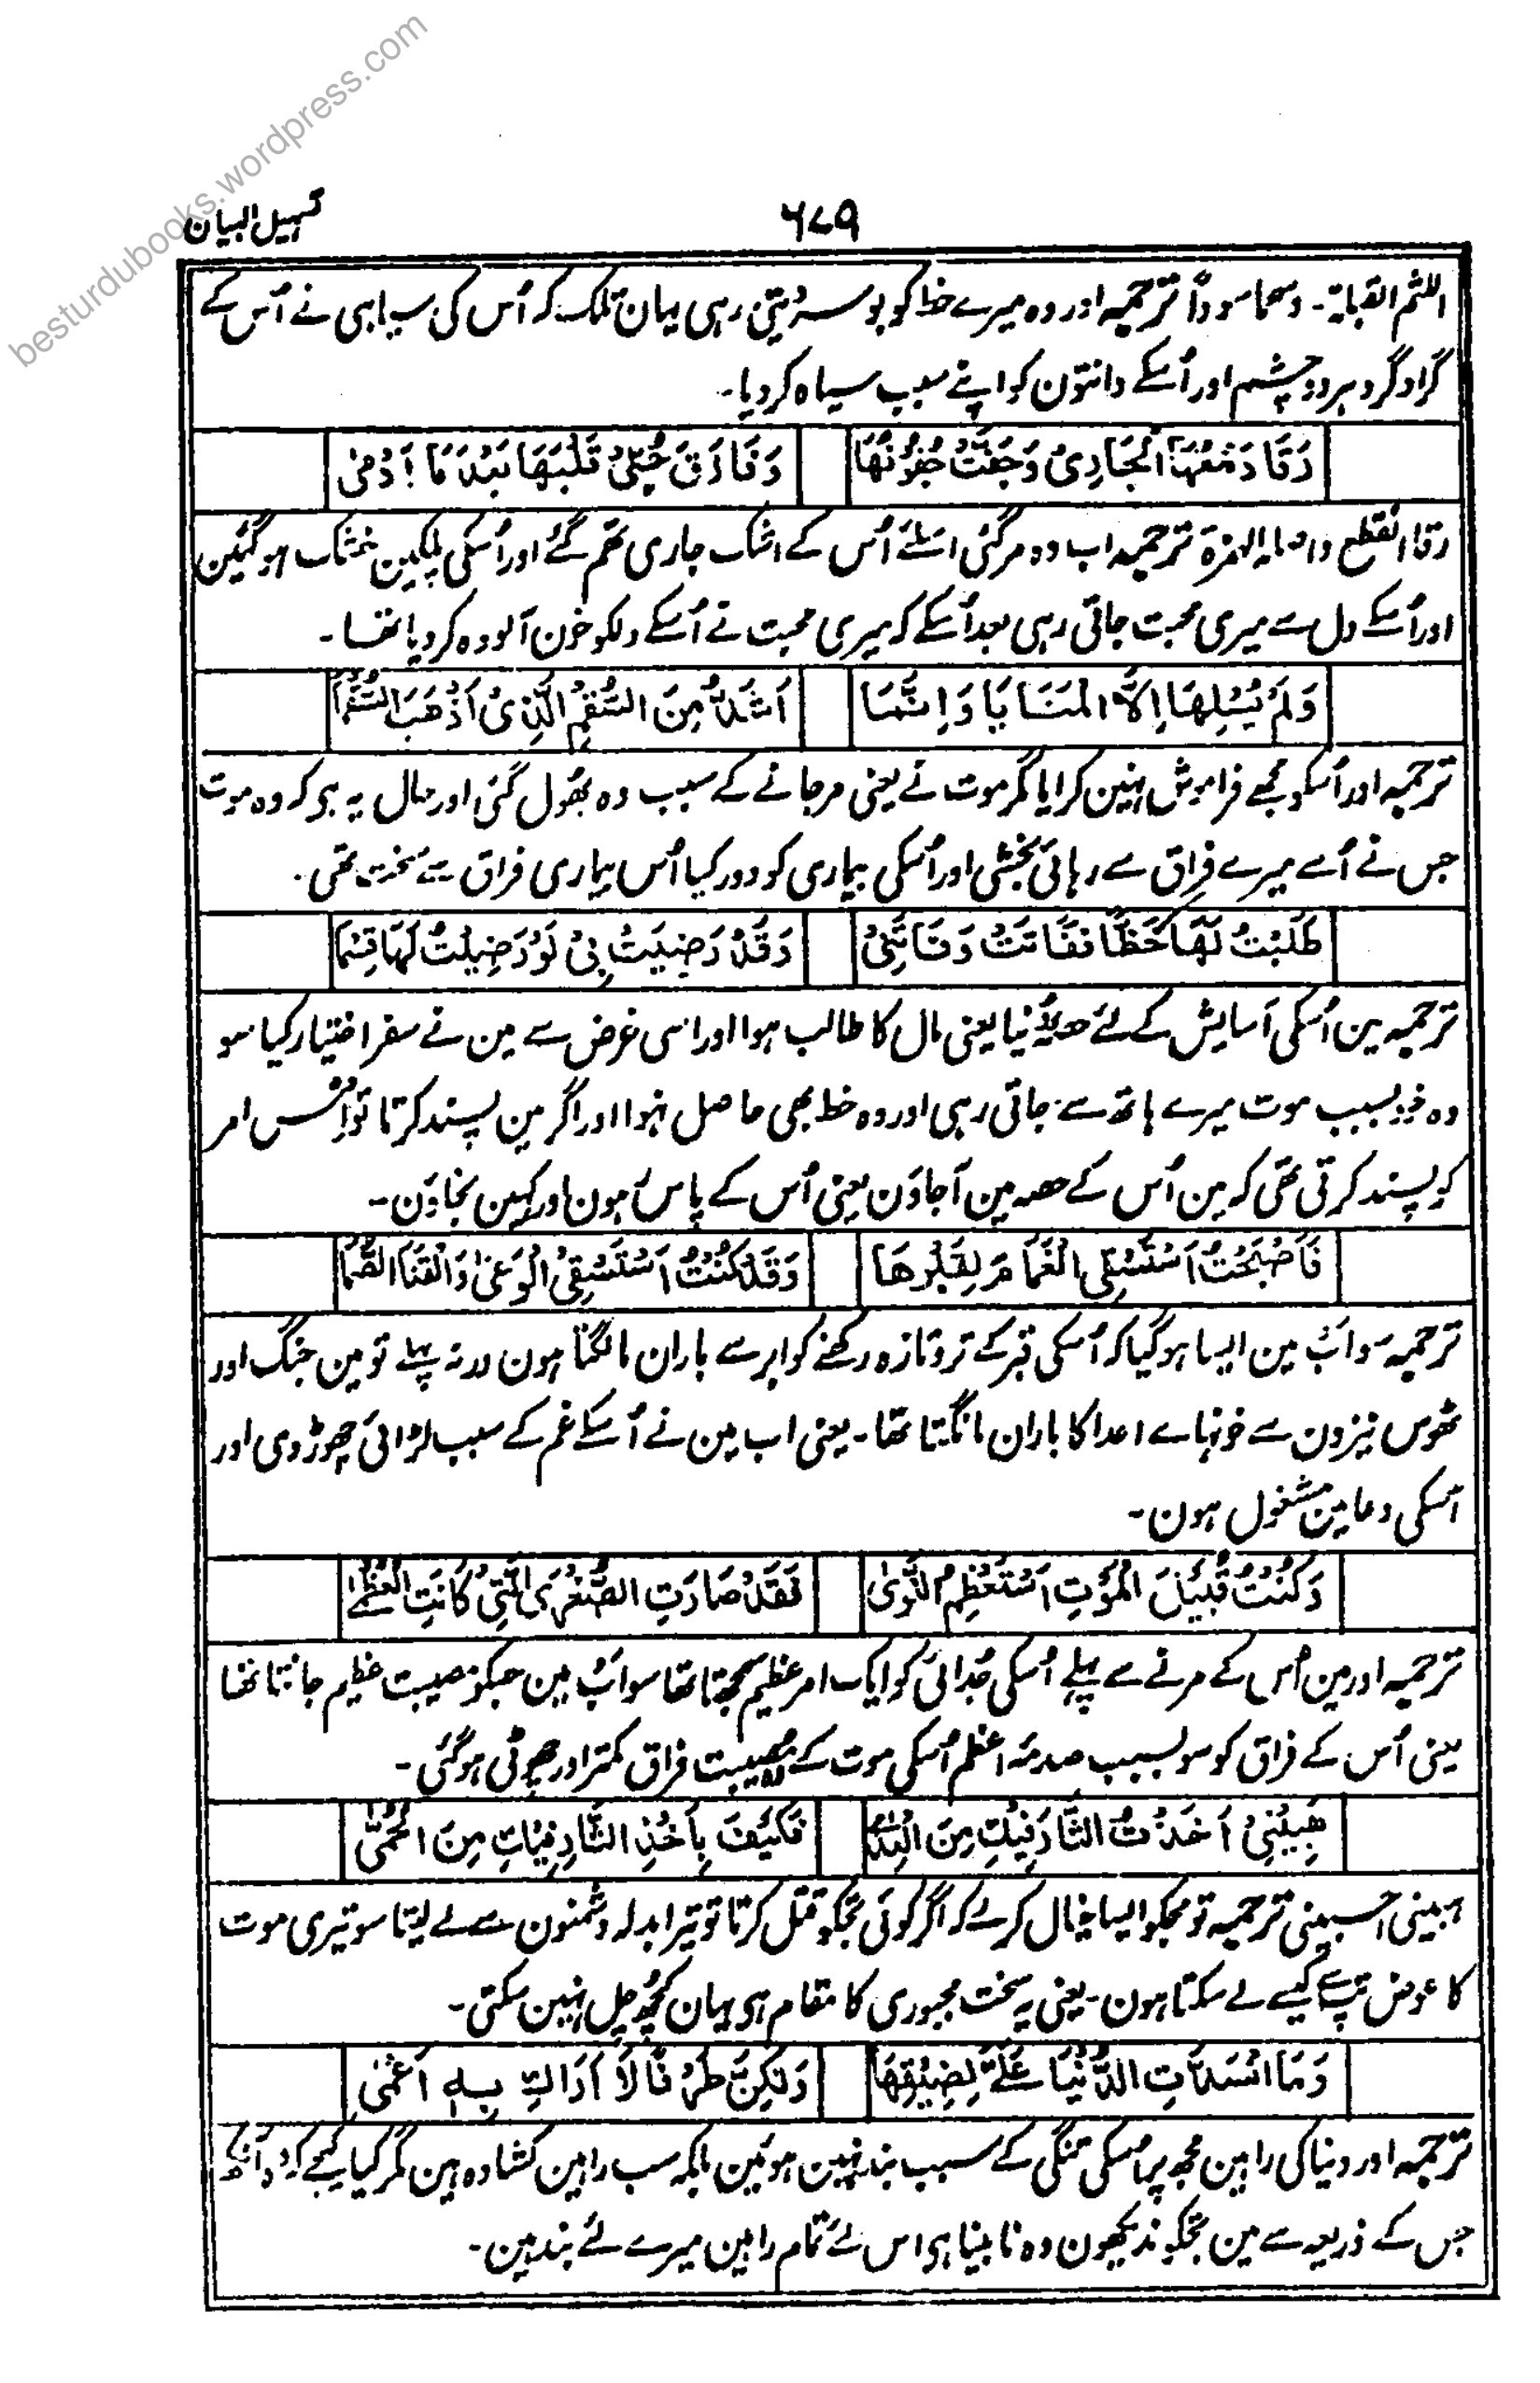 besturdubooks.wordpress.com
تسہیل البیان
۶۷۹
اللثم القبلۃ۔ وسحما سوداً ترجمہ اور وہ میرے خط کو بوسہ دیتی رہی یہان تلک کہ اُس کی سیاہی نے اُس کے
گرداگرد ہر دو چشم اور اُسکے دانتون کو اپنے سبب سیاہ کردیا۔
رَقَا دَمْعُهَا الْجَارِیْ وَجَفَّتْ جُفُوْنُهَا وَفَارَقَ حُبِّیْ قَلْبَهَا بَعْدَ مَا اَدْمٰی
رقا انقطع واصلہ الہمزۃ ترجمہ اب وہ مرگئی اسلئے اُس کے اشک جاری تھم گئے اور اُسکی پلکین خشک ہوگئین
اور اُسکے دل سے میری محبت جاتی رہی بعد اُسکے کہ میری محبت نے اُسکے دلکو خون آلودہ کردیا تھا۔
وَلَمْ یُسْلِهَا اِلَّا الْمَنَایَا وَاِنَّمَا اَشَدُّ مِنَ السُّقْمِ الَّذِیْ اَذْهَبَ السُّقْمَا
ترجمہ اور اُسکو مجھے فراموش نہین کرایا مگر موت نے یعنی مرجانے کے سبب وہ بھول گئی اور حال یہ ہی کہ وہ موت
جس نے اُسے میرے فراق سے رہائی بخشی اور اُسکی بیماری کو دور کیا اُس بیماری فراق سے سخت تھی۔
طَلَبْتُ لَهَا حَظًّا فَفَاتَتْ وَفَاتَنِیْ وَقَدْ رَضِیَتْ بِیْ لَوْ رَضِیْتُ لَهَا قِسْمَا
ترجمہ مین اُسکی آسایش کے لئے حظ دنیا یعنی مال کا طالب ہوا اور اسی غرض سے مین نے سفر اختیار کیا سو
وہ خود بسبب موت میرے ہاتھ سے جاتی رہی اور وہ خط بھی حاصل نہوا اور اگر مین پسند کرتا تو اس امر
کو پسند کرتی تھی کہ مین اُس کے حصہ مین آجاؤن یعنی اُس کے پاس ہون اور کہین نجاؤن۔
فَاَصْبَحْتُ اَسْتَسْقِی الْغَمَامَ لِقَبْرِهَا وَقَدْ كُنْتُ اَسْتَسْقِی الْوَغٰی وَالْقَنَا الصُّمَّا
ترجمہ سو اب مین ایسا ہوگیا کہ اُسکی قبر کے تروتازہ رکھنے کو ابر سے باران مانگتا ہون ورنہ پہلے تو مین جنگ اور
ٹھوس نیزون سے خونہاے اعدا کا باران مانگتا تھا۔ یعنی اب مین نے اُسکے غم کے سبب لڑائی چھوڑ دی اور
اُسکی دعا مین مشغول ہون۔
وَكُنْتُ قُبَیْلَ الْمَوْتِ اَسْتَعْظِمُ النَّوٰی فَقَدْ صَارَتِ الصُّغْرَی الَّتِیْ كَانَتِ الْعُظْمٰی
ترجمہ اور مین اُس کے مرنے سے پہلے اُسکی جدائی کو ایک امر عظیم سمجھتا تھا سو اب مین جسکو مصیبت عظیم جانتا تھا
یعنی اُس کے فراق کو سو بسبب صدمۂ اعظم اُسکی موت کے مصیبت فراق کمتر اور چھوٹی ہوگئی۔
هَبِیْنِیْ اَخَذْتُ الثَّارَ فِیْكِ مِنَ الْعِدٰی فَكَیْفَ بِاَخْذِ الثَّارِ فِیْكِ مِنَ الْحُمّٰی
ہبینی احسبینی ترجمہ تو مجکو ایسا خیال کرلے کہ اگر کوئی تجکو قتل کرتا تو تیرا بدلہ دشمنون سے لے لیتا سو تیری موت
کا عوض تپ سے کیسے لے سکتا ہون۔ یعنی یہ سخت مجبوری کا مقام ہی یہان کچھ چل نہین سکتی۔
وَمَا انْسَدَّتِ الدُّنْیَا عَلَیَّ لِضِیْقِهَا وَلٰكِنَّ طَرْفًا لَا اَرَاكِ بِهٖ اَعْمٰی
ترجمہ اور دنیا کی راہین مجھ پر اُسکی تنگی کے سبب بند نہین ہوئین بلکہ سب راہین کشادہ ہین مگر کیا کیجے کہ وہ آنکھ
جس کے ذریعہ سے مین تجکو ندیکھون وہ نابینا ہی اس لئے تمام راہین میرے لئے بند ہین۔